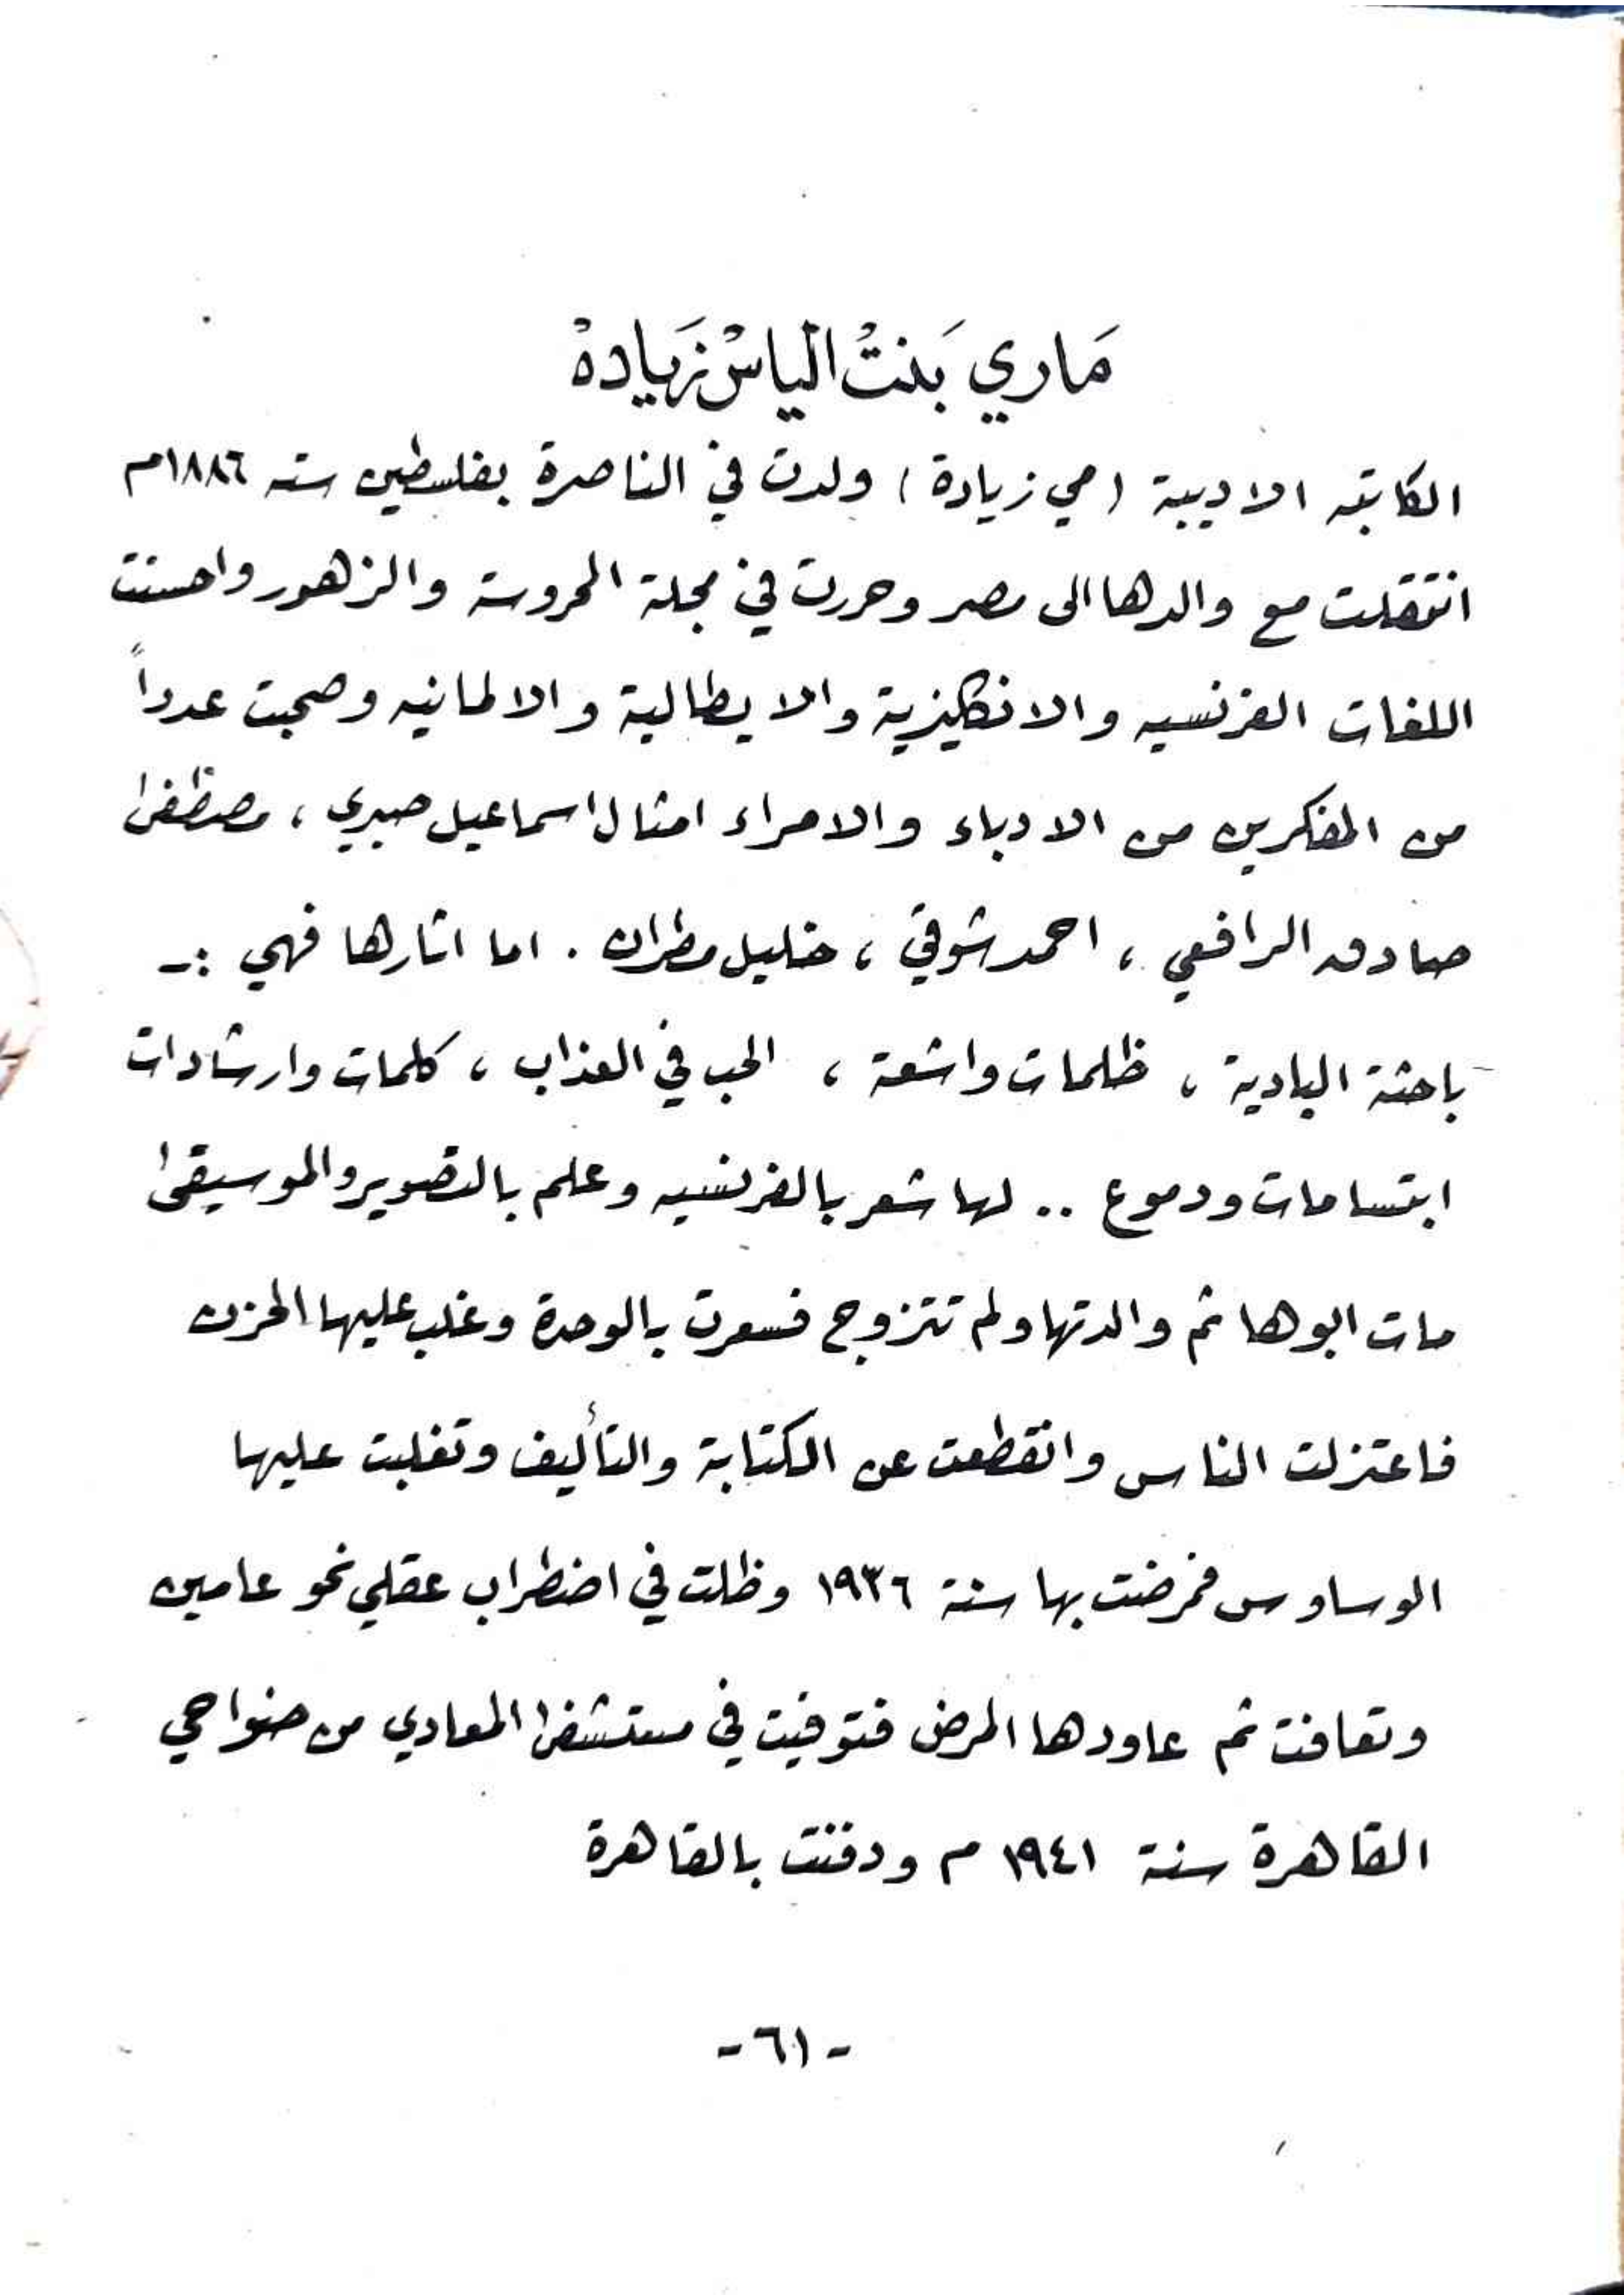 مَاري بَنتْ الياسْ زَيادهْ
الكاتبه الاديبة (مي زيادة) ولدت في الناصرة بفلسطين سنه ١٨٨٦م
انتقلت مع والدها الى مصر وحررت في مجلة المحروسة والزهور واحسنت
اللغات الفرنسيه والانكليزية والايطالية والالمانيه وصحبت عدداً
من المفكرين من الادباء والامراء امثال اسماعيل صبري ، مصطفى
صادق الرافعي ، احمد شوقي ، خليل مطران . اما اثارها فهي :-
باحثة البادية ، ظلمات واشعة ، الحب في العذاب ، كلمات وارشادات
ابتسامات ودموع .. لها شعر بالفرنسيه وعلم بالتصوير والموسيقى
مات ابوها ثم والدتها ولم تتزوج فسعرت بالوحدة وغلب عليها الحزن
فاعتزلت الناس وانقطعت عن الكتابة والتأليف وتغلبت عليها
الوساوس فمرضت بها سنة ١٩٣٦ وظلت في اضطراب عقلي نحو عامين
وتعافت ثم عاودها المرض فتوفيت في مستشفى المعادي من ضواحي
القاهرة سنة ١٩٤١ م ودفنت بالقاهرة
- ٦١ -